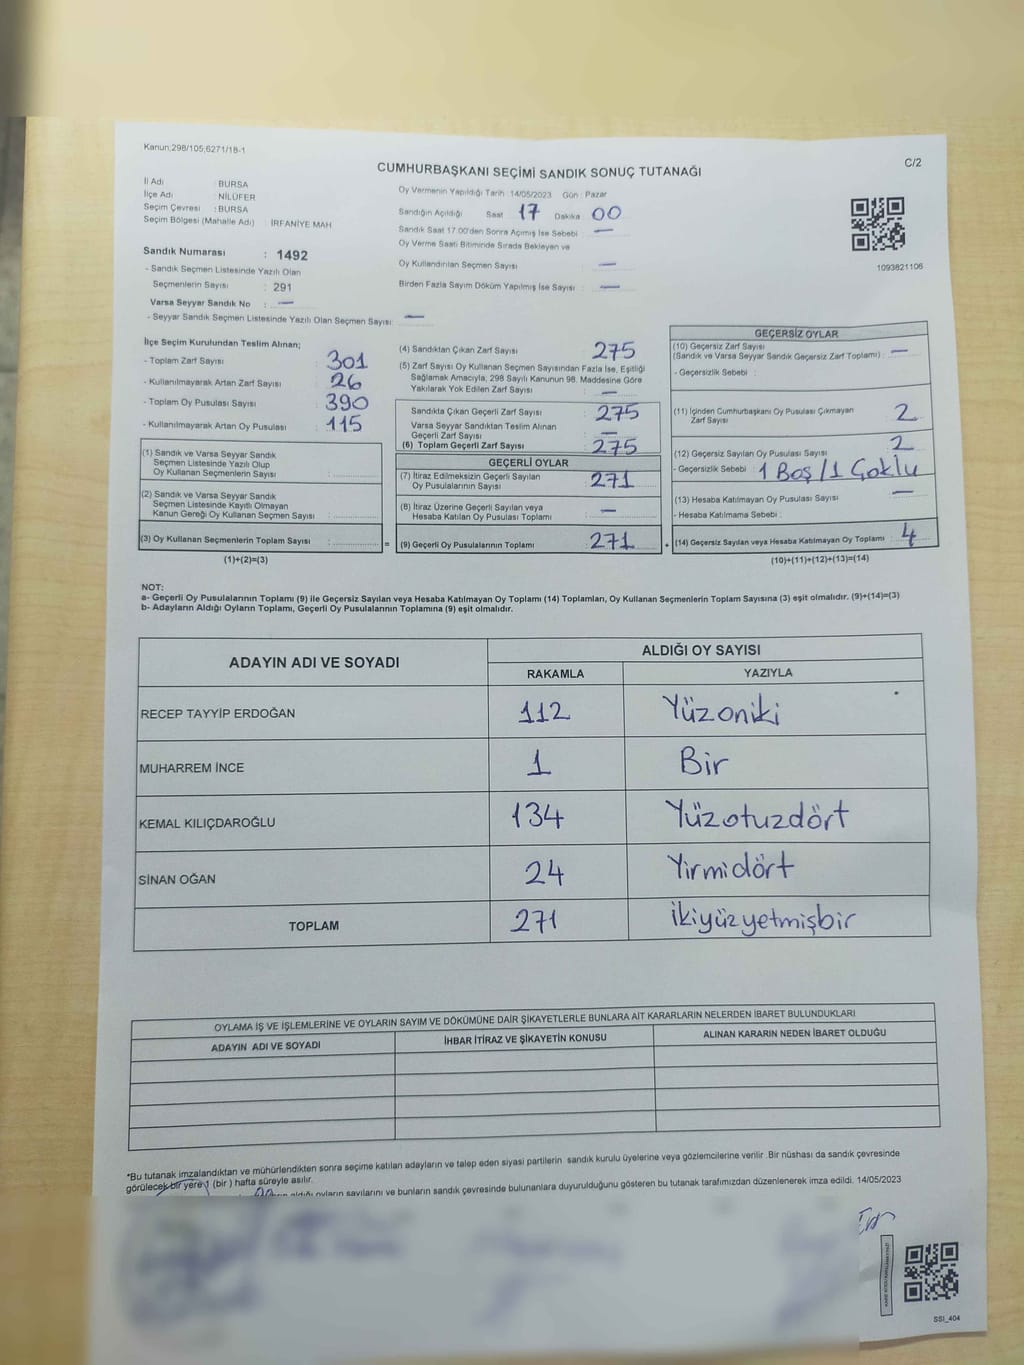 Kanun;298/105,6271/18-1
CUMHURBAŞKANI SEÇİMİ SANDIK SONUÇ TUTANAĞI
C/2
İl Adı : BURSA
İlçe Adı : NİLÜFER
Seçim Çevresi : BURSA
Seçim Bölgesi (Mahalle Adı) : İRFANİYE MAH
Sandık Numarası : 1492
- Sandık Seçmen Listesinde Yazılı Olan
Seçmenlerin Sayısı : 291
Varsa Seyyar Sandık No : —
- Seyyar Sandık Seçmen Listesinde Yazılı Olan Seçmen Sayısı: —
Oy Vermenin Yapıldığı Tarih : 14/05/2023 Gün : Pazar
Sandığın Açıldığı Saat 17 Dakika 00
Sandık Saat 17:00'den Sonra Açımış İse Sebebi : —
Oy Verme Saati Bitiminde Sırada Bekleyen ve
Oy Kullandırılan Seçmen Sayısı : —
Birden Fazla Sayım Döküm Yapılmış İse Sayısı : —
1093821106
İlçe Seçim Kurulundan Teslim Alınan;
- Toplam Zarf Sayısı : 301
- Kullanılmayarak Artan Zarf Sayısı : 26
- Toplam Oy Pusulası Sayısı : 390
- Kullanılmayarak Artan Oy Pusulası : 115
(1) Sandık ve Varsa Seyyar Sandık
Seçmen Listesinde Yazılı Olup
Oy Kullanan Seçmenlerin Sayısı :
(2) Sandık ve Varsa Seyyar Sandık
Seçmen Listesinde Kayıtlı Olmayan
Kanun Gereği Oy Kullanan Seçmen Sayısı :
(3) Oy Kullanan Seçmenlerin Toplam Sayısı :
(1)+(2)=(3)
(4) Sandıktan Çıkan Zarf Sayısı : 275
(5) Zarf Sayısı Oy Kullanan Seçmen Sayısından Fazla İse, Eşitliği
Sağlamak Amacıyla, 298 Sayılı Kanunun 98. Maddesine Göre
Yakılarak Yok Edilen Zarf Sayısı : —
Sandıkta Çıkan Geçerli Zarf Sayısı : 275
Varsa Seyyar Sandıktan Teslim Alınan
Geçerli Zarf Sayısı : —
(6) Toplam Geçerli Zarf Sayısı : 275
GEÇERLİ OYLAR
(7) İtiraz Edilmeksizin Geçerli Sayılan
Oy Pusulalarının Sayısı : 271
(8) İtiraz Üzerine Geçerli Sayılan veya
Hesaba Katılan Oy Pusulası Toplamı : —
= (9) Geçerli Oy Pusulalarının Toplamı : 271 +
GEÇERSİZ OYLAR
(10) Geçersiz Zarf Sayısı
(Sandık ve Varsa Seyyar Sandık Geçersiz Zarf Toplamı) : —
- Geçersizlik Sebebi :
(11) İçinden Cumhurbaşkanı Oy Pusulası Çıkmayan
Zarf Sayısı : 2
(12) Geçersiz Sayılan Oy Pusulası Sayısı : 2
- Geçersizlik Sebebi : 1 Boş/1 Çoklu
(13) Hesaba Katılmayan Oy Pusulası Sayısı : —
- Hesaba Katılmama Sebebi :
(14) Geçersiz Sayılan veya Hesaba Katılmayan Oy Toplamı : 4
(10)+(11)+(12)+(13)=(14)
NOT:
a- Geçerli Oy Pusulalarının Toplamı (9) ile Geçersiz Sayılan veya Hesaba Katılmayan Oy Toplamı (14) Toplamları, Oy Kullanan Seçmenlerin Toplam Sayısına (3) eşit olmalıdır. (9)+(14)=(3)
b- Adayların Aldığı Oyların Toplamı, Geçerli Oy Pusulalarının Toplamına (9) eşit olmalıdır.
ADAYIN ADI VE SOYADI
ALDIĞI OY SAYISI
RAKAMLA YAZIYLA
RECEP TAYYİP ERDOĞAN 112 Yüzoniki
MUHARREM İNCE 1 Bir
KEMAL KILIÇDAROĞLU 134 Yüzotuzdört
SİNAN OĞAN 24 Yirmidört
TOPLAM 271 ikiyüzyetmişbir
OYLAMA İŞ VE İŞLEMLERİNE VE OYLARIN SAYIM VE DÖKÜMÜNE DAİR ŞİKAYETLERLE BUNLARA AİT KARARLARIN NELERDEN İBARET BULUNDUKLARI
ADAYIN ADI VE SOYADI İHBAR İTİRAZ VE ŞİKAYETİN KONUSU ALINAN KARARIN NEDEN İBARET OLDUĞU
*Bu tutanak imzalandıktan ve mühürlendikten sonra seçime katılan adayların ve talep eden siyasi partilerin sandık kurulu üyelerine veya gözlemcilerine verilir .Bir nüshası da sandık çevresinde
görülecek bir yere 1 (bir ) hafta süreyle asılır.
aldığı oyların sayılarını ve bunların sandık çevresinde bulunanlara duyurulduğunu gösteren bu tutanak tarafımızdan düzenlenerek imza edildi. 14/05/2023
SSI_404